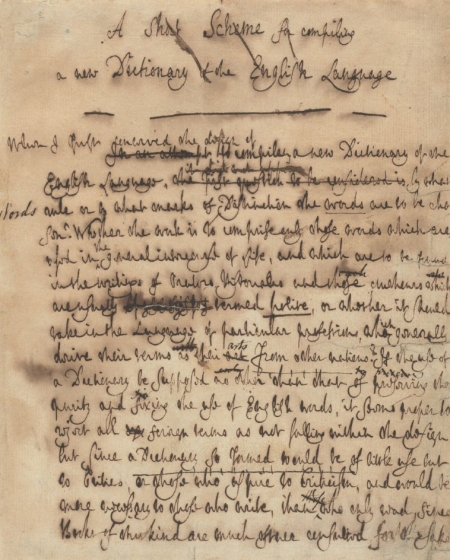 A Short Scheme for compiling
a new Dictionary of the English Language
When I first conceived the design of
In an attempt to compile a new Dictionary of the
English Language, the first question to be considered is, by what
Words rule or by what marks of Distinction the words are to be cho
sen. Whether the work is to comprise only those words which are
used in the general intercourse of life, and which are to be found
in the writings of Orators, and those
are usually termed polite, or whether it should
take in the Language of particular professions, which generally
derive their terms as their arts from other nations. If the use of
a Dictionary be supposed no other than that of preserving the
purity and fixing the use of English words, it seems proper to
reject all foreign terms as not falling within the design
but since a Dictionary so formed would be of little use but
to Critics, or those who aspire to Criticism, and would be
more necessary to those who write, than to those who only read, since
Books of this kind are much oftner consulted for the sake